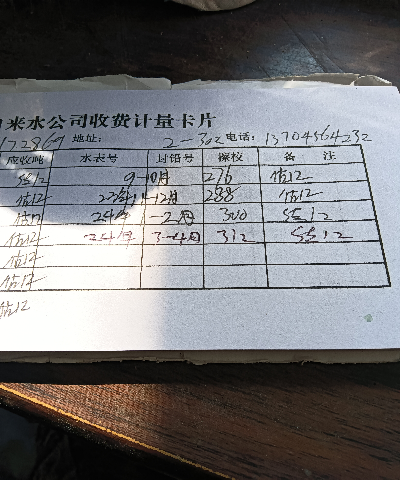 来水公司收费计量卡片
172869 地址: 2-302 电话: 13704564232
应收吨 水表号 封铅号 探校 备 注
估12 9-10月 276 估12
估12 23年11-12月 288 估12
估12 24年1-2月 300 估12
估12 24年 3-4月 312 估12
估12
估12
估12